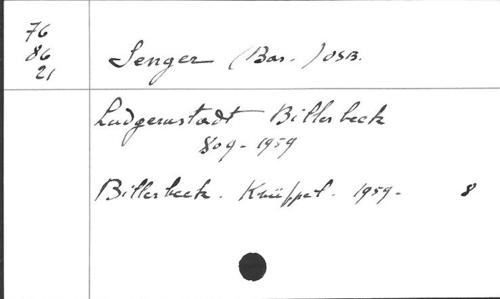 76
86
21
Senger (Bas.) OSB.
Ludgerusstadt Billerbeck
809-1959
Billerbeck. Knüppel. 1959- 8